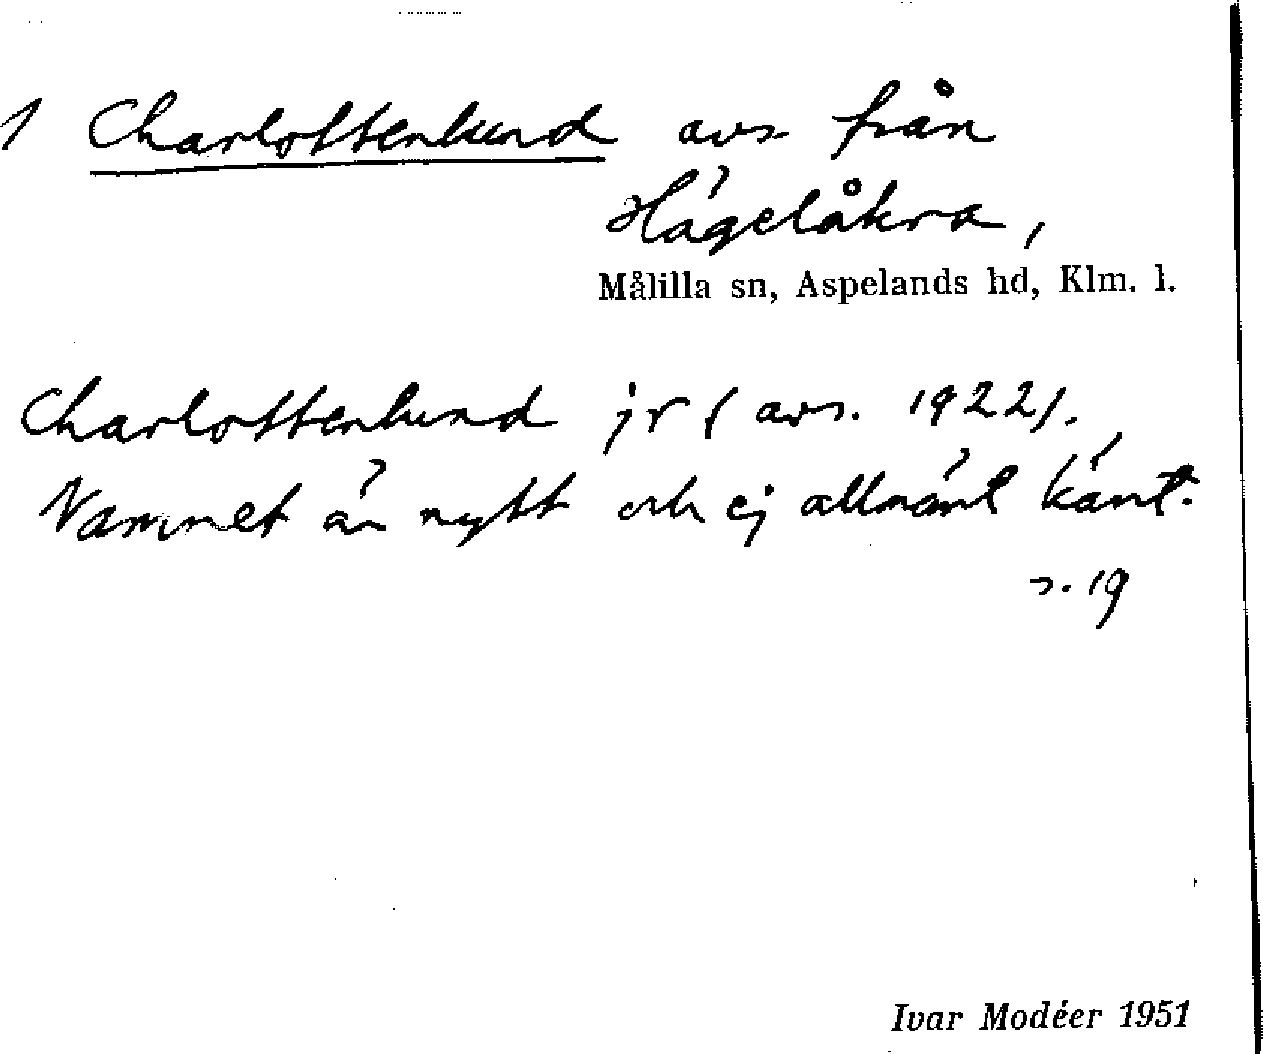 1 Charlottenlund avs från
Hägelåkra,
Målilla sn, Aspelands hd, Klm. l.
Charlottenlund jr (avs. 1922).
Namnet är nytt och ej allmänt känt.
s. 19
Ivar Modéer 1951